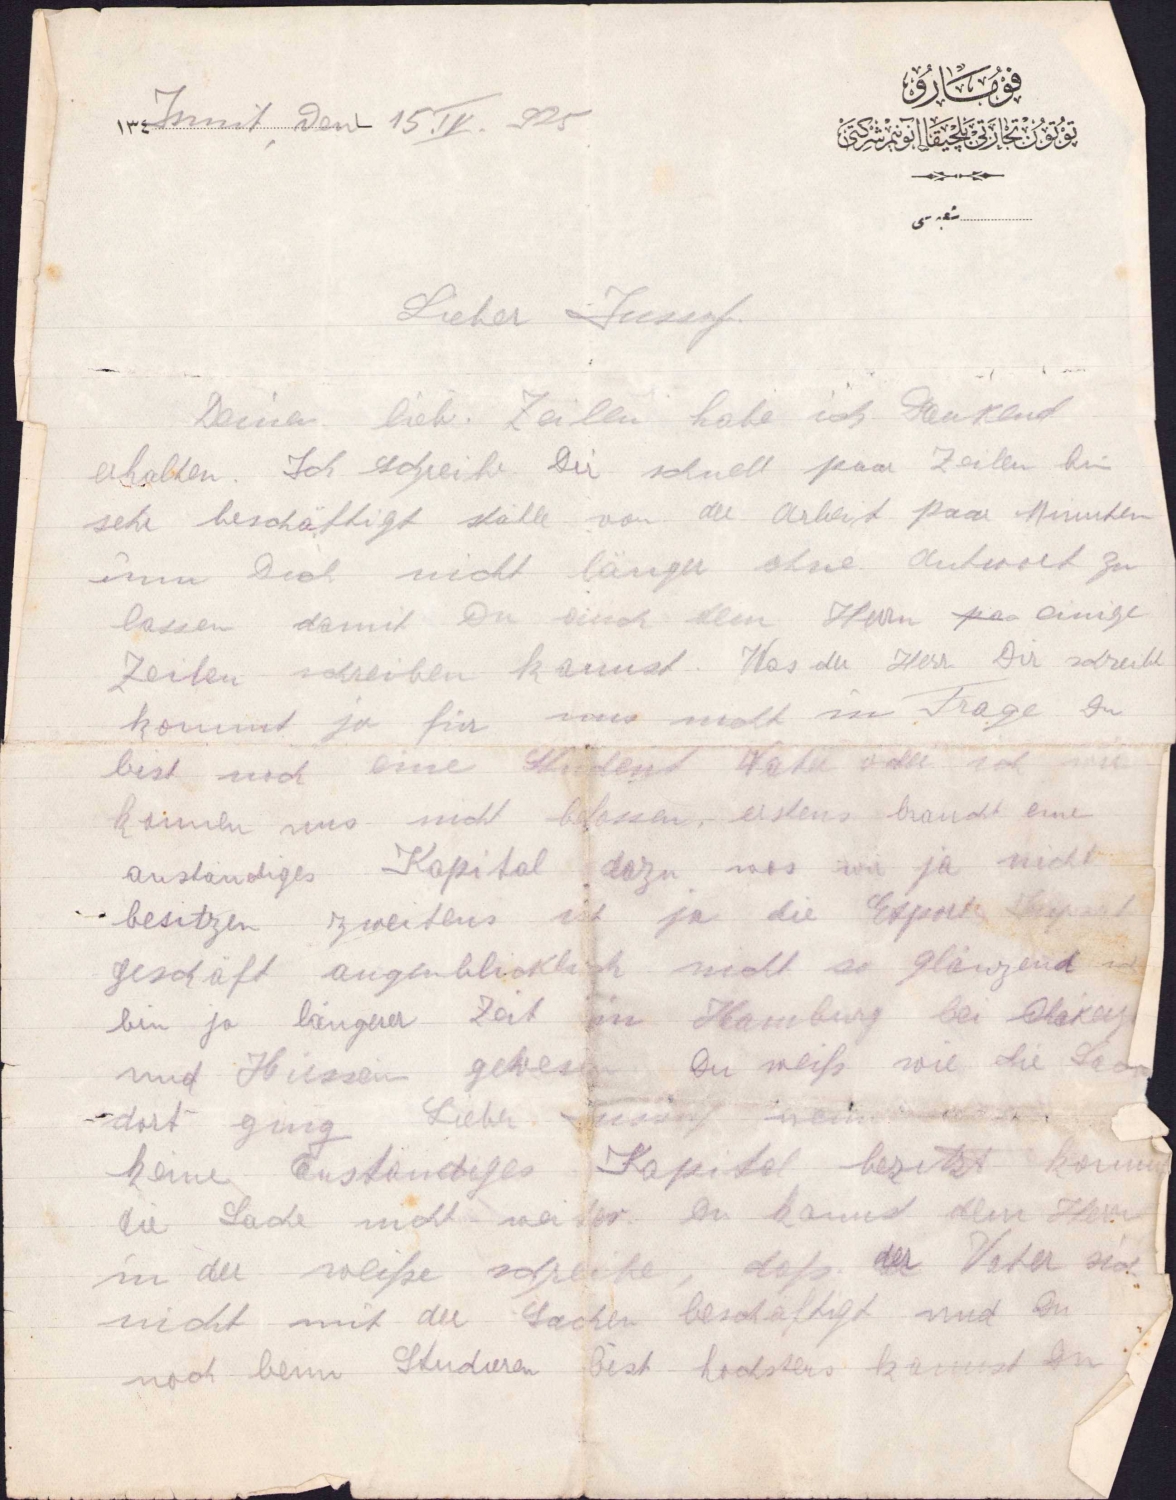 فومارو
توتون تجارتی بلچیقا آنونیم شرکتی
شعبه سی
١٣٤
Ismit, den 15.IV.925
Lieber Jussuf.
Deinen lieb. Zeilen habe ich Dankend
erhalten. Ich schreibe Dir schnell paar Zeilen bin
sehr beschäftigt von der Arbeit paar Minuten
um Dich nicht länger ohne Antwort zu
lassen damit Du auch dem Herrn paa einige
Zeilen schreiben kannst. Was der Herr Dir schreibt
kommt ja für uns nicht in Frage Du
bist noch eine Student Vater oder ich wir
können uns nicht befassen, erstens braucht eine
anständiges Kapital dazu was wir ja nicht
besitzen zweitens ist ja die Export Import
geschäft augenblicklich nicht so glänzend
bin ja längerer Zeit in Hamburg bei
und Hüssein gewesen Du weißs wie die
dort ging Lieber Jussuf wenn
keine anständiges Kapital bezitzt kommt
die Sache nicht weiter. Du kannst dem Herrn
in der weiße schreibe, daß der Vater sich
nicht mit der Sachen beschäftigt und Du
noch beim Studieren bist hochstens kannst Du